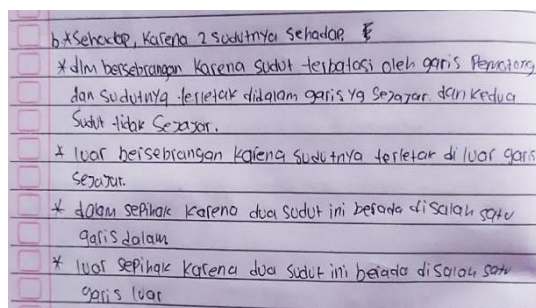 b.*Sehadap, karena 2 sudutnya sehadap.
* dlm bersebrangan karena sudut terbatasi oleh garis Pemotong
dan sudutnya terletak didalam garis yg sejajar dan kedua
sudut tidak sejajar.
* luar bersebrangan karena sudutnya terletak di luar garis
sejajar.
* dalam sepihak karena dua sudut ini berada disalah satu
garis dalam
* luar sepihak karena dua sudut ini berada disalah satu
garis luar